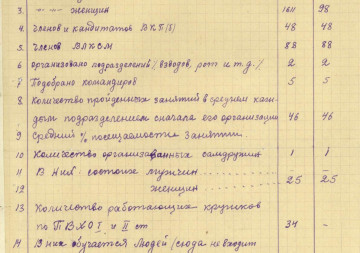 3. —"— женщин 1611 98
4 членов и кандитатов ВКП(б) 48 48
5. членов ВЛКСМ 88 88
6 организовано подразделений (взводов, рот и т.д.) 2 2
7 Подобрано командиров 5 5
8 Количество пройденных занятий в среднем каж-
дым подразделением с начала его организации 46 46
9 Средний % посещаемости занятий.
10 Количество организованных самдружин 1 1
11 В них состоит мужчин - -
12 женщин 25 25
13 Количество работающих кружков
по ПВХО I и II ст 34 -
14 В них обучается людей (сюда не входит